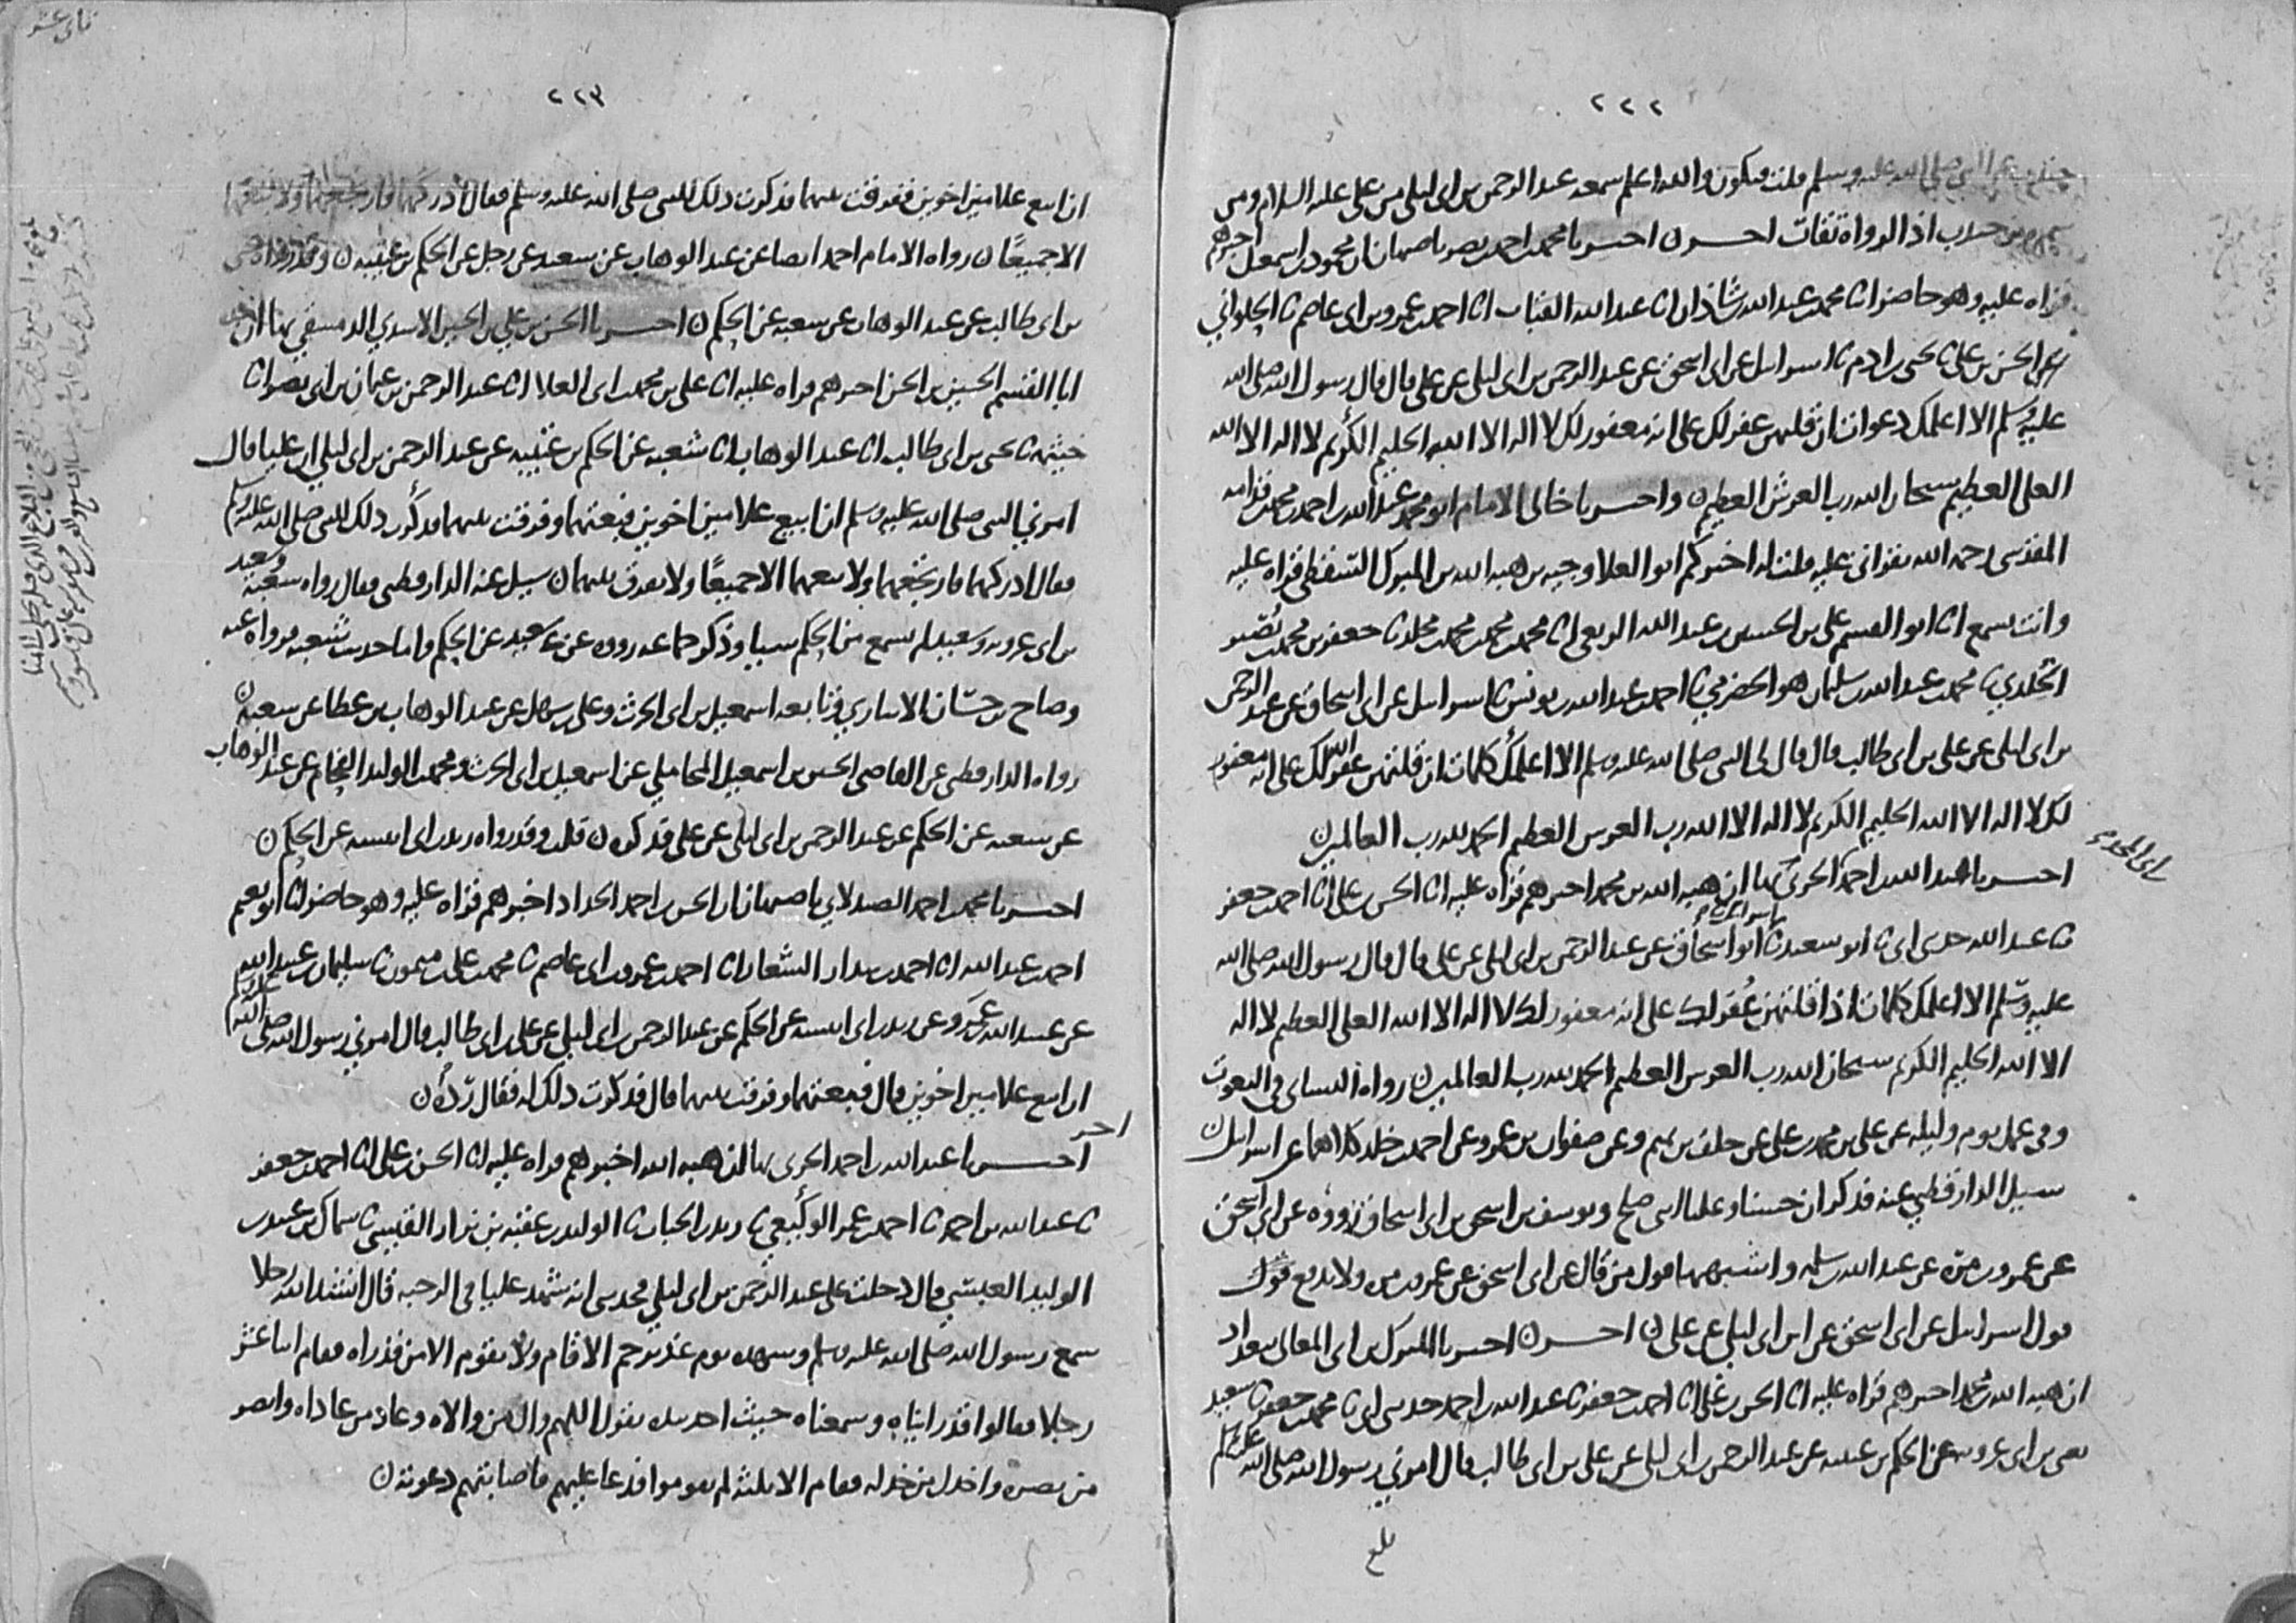 ٢٢٢
عن النبي صلى الله عليه وسلم قلت فيكون والله اعلم سمعه عبد الرحمن بن ابي ليلى من علي عليه السلام ومن
سمره بن جندب اذ الرواة ثقات احسرں احسرنا محمد بن احمد بن نصر باصبهان ان محمود بن اسمعل اخبرهم
قراه عليه وهو حاضر انا محمد بن عبد الله بن شاذان انا عبد الله القباب انا احمد بن عمرو بن ابي عاصم نا الحلواني
الحسن بن علي نا يحيى بن ادم نا اسرايل عن ابي اسحق عن عبد الرحمن بن ابي ليلى عن علي قال قال رسول الله صلى الله
عليه وسلم الا اعلمك دعوات ان قلتهن غفر لك على انه مغفور لك لا اله الا الله الحليم الكريم لا اله الا الله
العلي العظيم سبحان الله رب العرش العظيم ن واخبرنا خالي الامام ابو محمد عبد الله بن احمد بن محمد بن قدامه
المقدسي رحمه الله بقراتي عليه قلت له اخبركم ابو العلا وجيه بن هبه الله بن المبرك السقطي قراه عليه
وانت تسمع انا ابو القسم علي بن الحسين بن عبد الله الربعي انا محمد بن محمد بن محمد بن مخلد نا جعفر بن محمد بن نصير
الخلدي نا محمد بن عبد الله بن سليمان هو الحضرمي نا احمد بن عبد الله بن يونس نا اسرايل عن ابي اسحاق عن عبد الرحمن
بن ابي ليلى عن علي بن ابي طالب قال قال لي النبي صلى الله عليه وسلم الا اعلمك كلمات ان قلتهن غفر الله لك على انه مغفور
لك لا اله الا الله الحليم الكريم لا اله الا الله رب العرش العظيم الحمد لله رب العالمين
احسرنا عبد الله بن احمد الحربي بها ان هبه الله بن محمد اخبرهم قراه عليه انا الحسن بن علي انا احمد بن جعفر
نا عبد الله حدثني ابي نا ابو سعيد نا اسرائيل نا ابو اسحاق عن عبد الرحمن بن ابي ليلى عن علي قال قال رسول الله صلى الله
عليه وسلم الا اعلمك كلمات اذا قلتهن غفر لك على انه مغفور لك لا اله الا الله العلي العظيم لا اله
الا الله الحليم الكريم سبحان الله رب العرش العظيم الحمد لله رب العالمين ن رواه النسائي في النعوت
وفي عمل يوم وليله عن علي بن محمد بن علي عن خلف بن تميم وعن صفوان بن عمرو عن احمد بن خلد كلاهما عن اسرايل ن
سيل الدارقطني عنه فذكر ان حسنا وعليا ابني صلح ويوسف بن اسحق بن ابي اسحاق رووه عن ابي اسحق
عن عمرو بن مرة عن عبد الله بن سلمه واشبهها قول من قال عن ابي اسحق عن عمرو بن مره ولا يدفع قول
قول اسرايل عن ابي اسحق عن ابن ابي ليلى عن علي ن احسرں احسرنا المبرك بن ابي المعالي ببغداد
ان هبه الله بن محمد اخبرهم قراه عليه انا الحسن بن علي انا احمد بن جعفر نا عبد الله بن احمد حدثني ابي نا محمد بن جعفر نا سعيد
يعني بن ابي عروبه عن الحكم بن عتيبه عن عبد الرحمن بن ابي ليلى عن علي بن ابي طالب قال امرني رسول الله صلى الله عليه وسلم
بلغ
٢٢٣
ان ابيع غلامين اخوين ففرقت بينهما فذكرت ذلك للنبي صلى الله عليه وسلم فقال ادركهما فارتجعهما ولا تبعهما
الا جميعًا ن رواه الامام احمد ايضا عن عبد الوهاب عن سعيد عن رجل عن الحكم بن عتيبه ن وقد رواه يحيى
بن ابي طالب عن عبد الوهاب عن شعبه عن الحكم ن احسرنا الحسن بن علي بن الحسين الاسدي الدمشقي بها ان جده
ابا القسم الحسين بن الحسن اخبرهم قراه عليه انا علي بن محمد بن ابي العلا انا عبد الرحمن بن عثمان بن ابي نصر انا
خيثمه نا يحيى بن ابي طالب انا عبد الوهاب انا شعبه عن الحكم بن عتيبه عن عبد الرحمن بن ابي ليلى ان عليا قال
امرني النبي صلى الله عليه وسلم ان ابيع غلامين اخوين فبعتهما وفرقت بينهما فذكرت ذلك للنبي صلى الله عليه وسلم
فقال ادركهما فارتجعهما ولا تبعهما الا جميعًا ولا تفرق بينهما ن سيل عنه الدارقطني فقال رواه شعبة وسعيد
بن ابي عروبه وسعيد لم يسمع من الحكم شيا وذكر جماعه رووه عن سعيد عن الحكم واما حديث شعبه فرواه عنه
وصاح بن حسان الانباري وتابعه اسمعيل بن ابي الحرث وعلي بن سهل عن عبد الوهاب بن عطا عن شعبه ن
رواه الدارقطني عن القاضي الحسين بن اسمعيل المحاملي عن اسمعيل بن ابي الحرث ومحمد بن الوليد الفحام عن عبد الوهاب
عن شعبه عن الحكم عن عبد الرحمن بن ابي ليلى عن علي فذكره ن قلت وقد رواه زيد بن ابي انيسه عن الحكم ن
احسرنا محمد بن احمد الصيدلاني باصبهان ان الحسن بن احمد الحداد اخبرهم قراه عليه وهو حاضر انا ابو نعيم
احمد بن عبد الله انا احمد بن بندار الشعار انا احمد بن عمرو بن ابي عاصم نا محمد بن علي بن ميمون نا سليمان بن عبيد الله
عن عبيد الله بن عمرو عن زيد بن ابي انيسه عن الحكم عن عبد الرحمن بن ابي ليلى عن علي بن ابي طالب قال امرني رسول الله صلى الله عليه وسلم
ان ابيع غلامين اخوين قال فبعتهما وفرقت بينهما قال فذكرت ذلك له فقال رده ن
احسرنا عبد الله بن احمد الحربي بها ان هبه الله اخبرهم قراه عليه انا الحسن بن علي انا احمد بن جعفر
نا عبد الله بن احمد نا احمد بن عمر الوكيعي نا زيد بن الحباب نا الوليد بن عقبة بن نزار القيسي نا سماك بن عبيد بن
الوليد العبسي قال دخلت على عبد الرحمن بن ابي ليلى فحدثني انه شهد عليا في الرحبه قال انشد الله رجلا
سمع رسول الله صلى الله عليه وسلم وشهده يوم غدير خم الا قام ولا يقوم الا من قد راه فقام اثنا عشر
رجلا فقالوا قد رايناه وسمعناه حيث اخذ بيده يقول اللهم وال من والاه وعاد من عاداه وانصر
من نصره واخذل من خذله فقام الا ثلثة لم يقوموا فدعا عليهم فاصابتهم دعوته ن